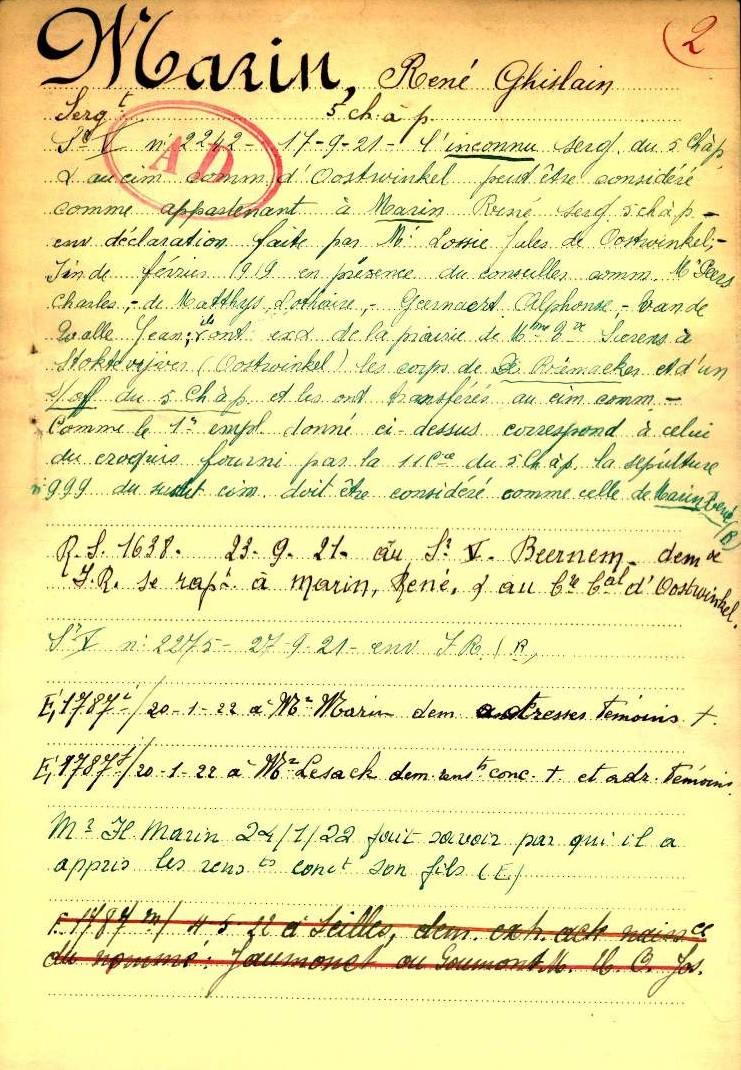 2
Marin, René Ghislain
Sergt 5 ch à p.
Sce V n° 2242 - 17-9-21 - l'inconnu serg. du 5 Chàp
AD
au cim comm. d'Oostwinkel peut être considéré
comme appartenant à Marin René serg 5 chàp -
env déclaration faite par Mr Lossie Jules de Oostwinkel, -
fin de février 1919 en présence du conseiller comm. Mr Peers
Charles, - de Matthys Lothaire, - Geernaert Alphonse, - Van de
Walle Jean; ils ont ex de la prairie de Mme Sierens à
(Oostwinkel) les corps de De Praemacker et d'un
S/off du 5 Chàp et les ont transférés au cim comm. -
Comme le 1r empl donné ci-dessus correspond à celui
du croquis fourni par la 11 Cie du 5 Chàp. la sépulture
n° 999 du susdit cim. doit être considéré comme celle de Marin René
(R)
R.S. 1638. 23-9-21- au Sr V. Beernem - dem de
J.R. se rapt à Marin, René, au Cre Cal d'Oostwinkel.
Sr V n° 2275 - 27-9-21 - env J R. (R,
E, 1787 / 20-1-22 à Mr Marin dem adresses témoins +.
E, 1787 / 20-1-22 à Mr Lesack dem. rensts conc. + et adr. témoins.
Mr H Marin 24/1/22 fait savoir par qui il a
appris les rensts conct son fils (E)
E. 1787 m/ 4-5-22 à Seilles, dem. ext. acte naissce
du nommé: Jaumonet ou Goumont M. U. O. Jos.